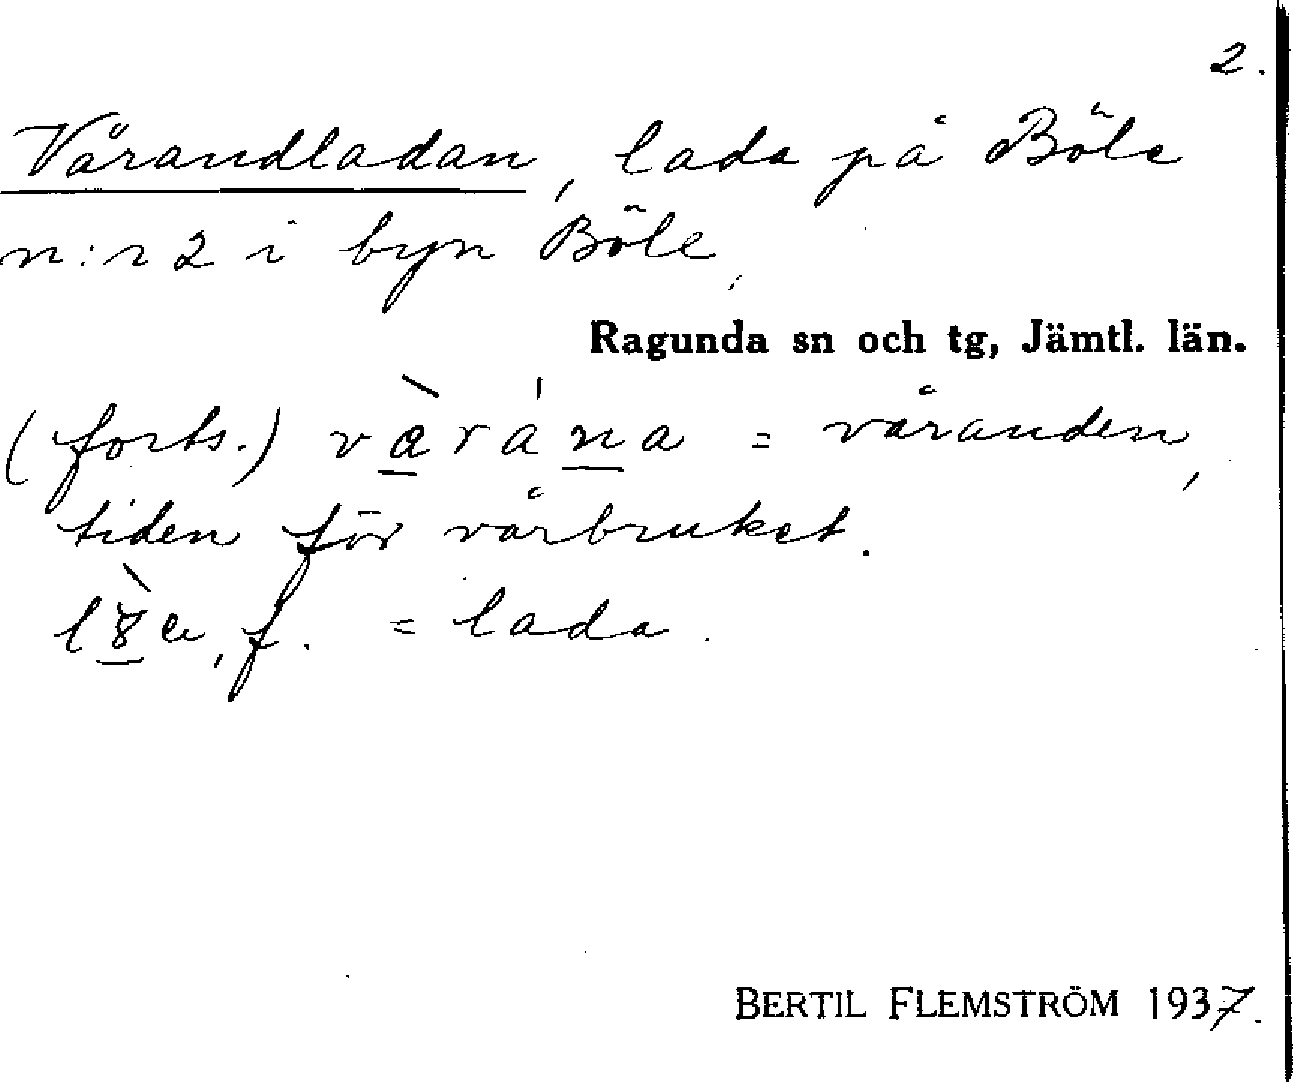 2.
Vårandladan, lada på Böle
n:r 2 i byn Böle,
Ragunda sn och tg, Jämtl. län.
(forts.) = våranden,
tiden för vårbruket.
f. = lada.
BERTIL FLEMSTRÖM 1937.